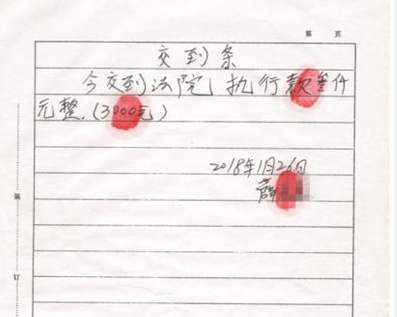 第 页
交到条
今交到法院执行款叁仟
元整.(3000元)
2018年1月26日
薛
装
订